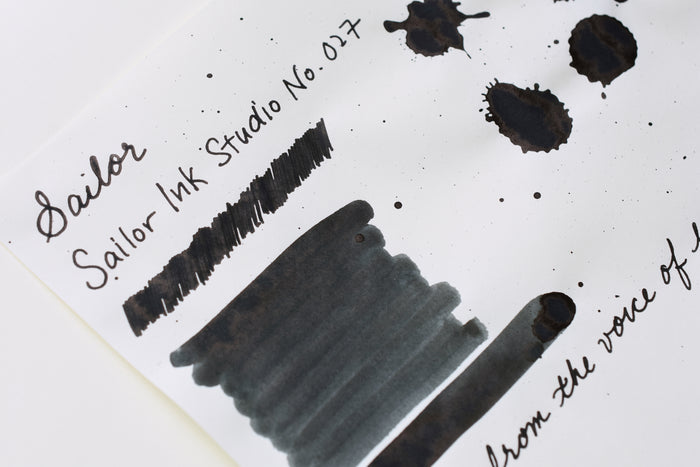 Sailor
Sailor Ink Studio No. 027
from the voice of